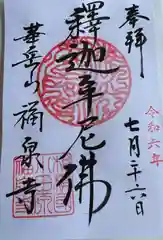 奉拝
令和六年
七月二十六日
釋迦牟尼佛
華岳山福泉寺